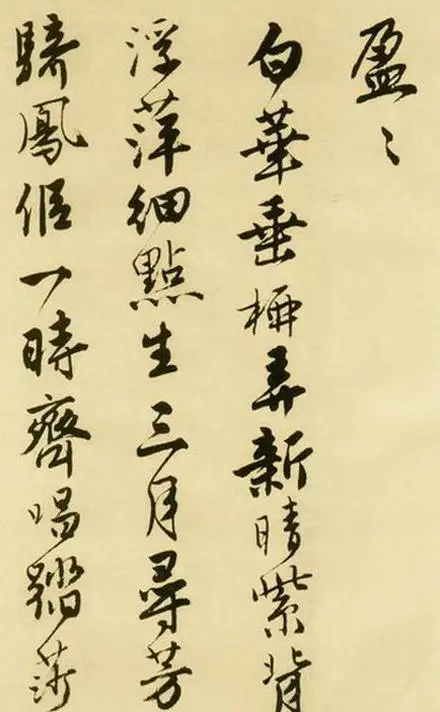 盈〻
白華垂桺弄新晴紫背
浮萍細點生三月尋芳
騎鳳侣一時齊唱踏莎